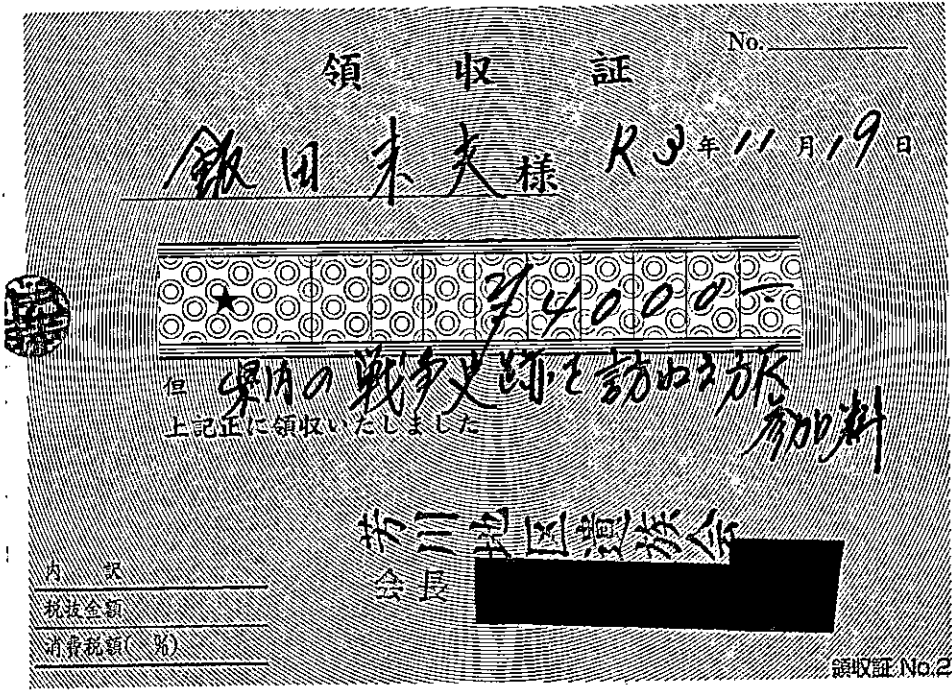 No.
領収証
飯田末夫様 R3年11月19日
★ ¥4000-
但 県内の戦争史跡を訪ねる旅
参加料
上記正に領収いたしました
芳川地区遺族会
会長
内訳
税抜金額
消費税額( %)
領収証 No.2